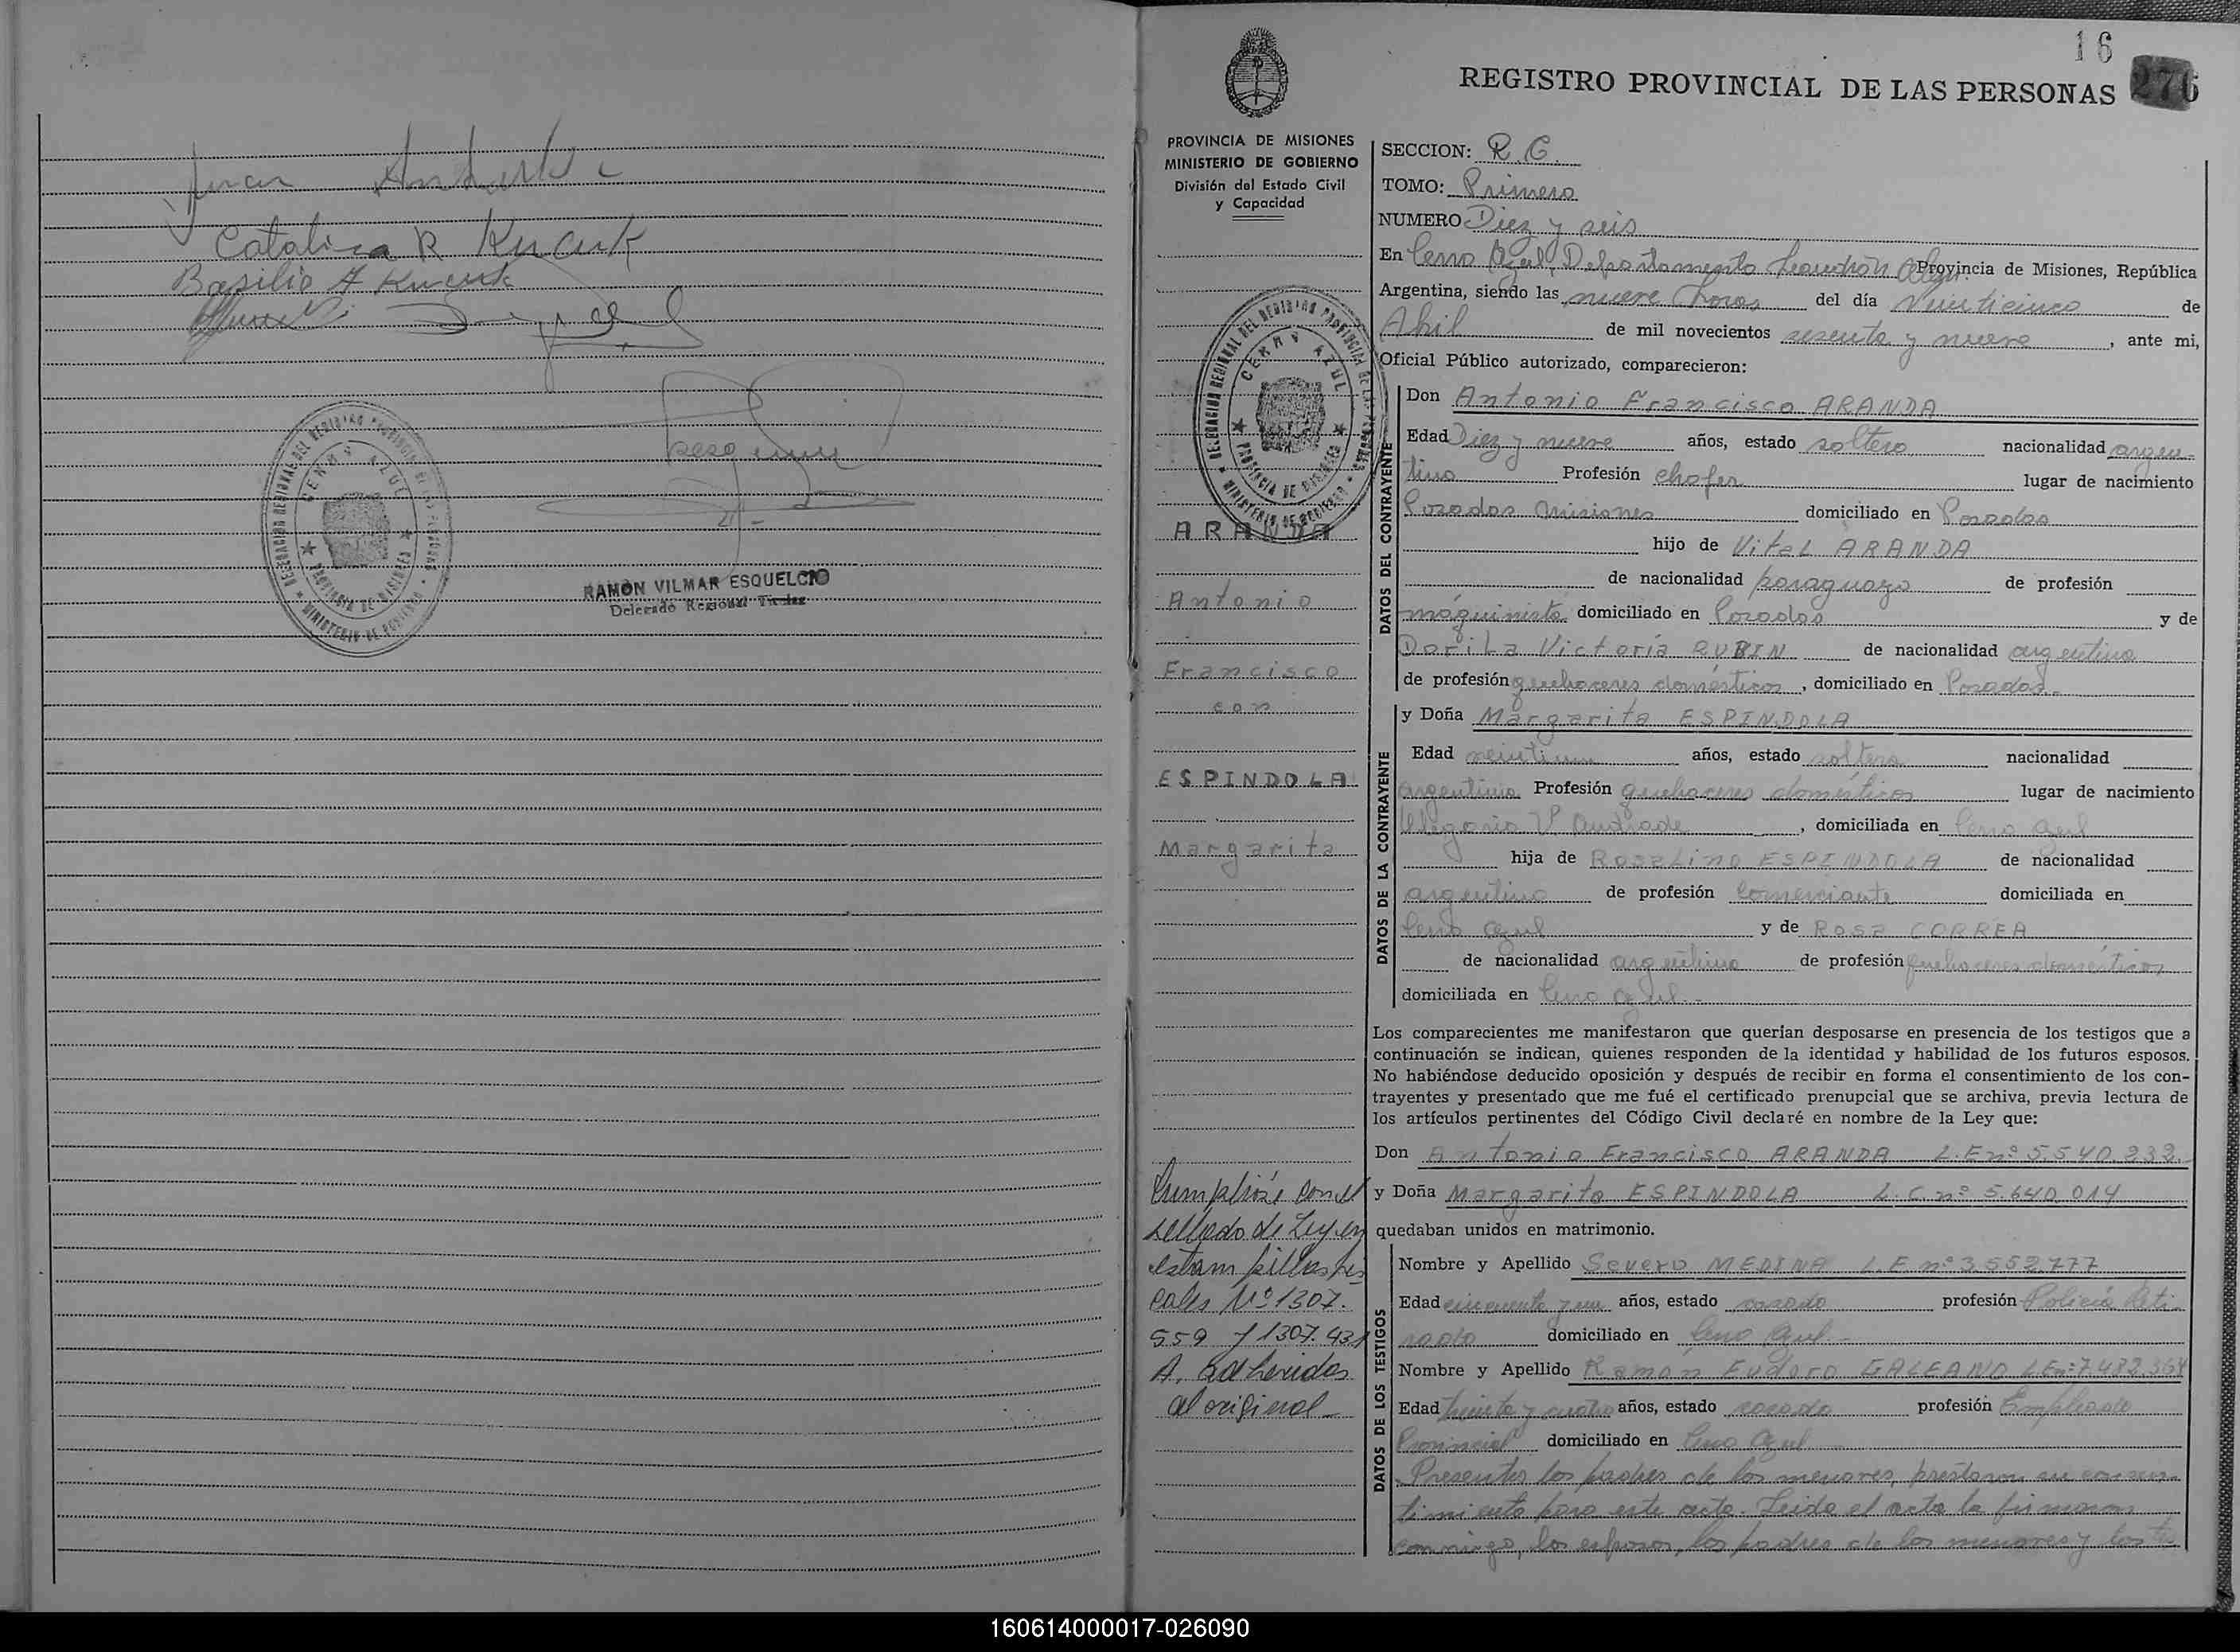 Juan
Catalina R Kucuk
Basilio A Kucuk
DELEGACION REGIONAL DEL REGISTRO PROVINCIAL DE LAS PERSONAS
CERRO AZUL
PROVINCIA DE MISIONES
MINISTERIO DE GOBIERNO
RAMÓN VILMAR ESQUELCIO
Delegado Regional Titular
16
REGISTRO PROVINCIAL DE LAS PERSONAS 276
PROVINCIA DE MISIONES
MINISTERIO DE GOBIERNO
División del Estado Civil
y Capacidad
DELEGACION REGIONAL DEL REGISTRO PROVINCIAL DE LAS PERSONAS
CERRO AZUL
PROVINCIA DE MISIONES
MINISTERIO DE GOBIERNO
ARANDA
Antonio
Francisco
con
ESPINDOLA
Margarita
Cumplióse con el
sellado de Ley en
estampillas fis
cales Nº 1307.
559 y 1307.431
A. adheridas
al original_
SECCION: R.C.
TOMO: Primero
NUMERO Diez y seis
En Cerro Azul, Departamento Leandro N Alem. Provincia de Misiones, República
Argentina, siendo las nueve horas del día Veinticinco de
Abril de mil novecientos sesenta y nueve, ante mi,
Oficial Público autorizado, comparecieron:
DATOS DEL CONTRAYENTE
Don Antonio Francisco ARANDA
Edad Diez y nueve años, estado soltero nacionalidad argen-
tino Profesión chofer lugar de nacimiento
Posadas Misiones domiciliado en Posadas
hijo de Vital ARANDA
de nacionalidad paraguayo de profesión
maquinista domiciliado en Posadas y de
Dorila Victoria RUBIN de nacionalidad argentina
de profesión quehaceres domésticos, domiciliado en Posadas.
DATOS DE LA CONTRAYENTE
y Doña Margarita ESPINDOLA
Edad veintiun años, estado soltera nacionalidad
argentina Profesión quehaceres domésticos lugar de nacimiento
Olegario V Andrade, domiciliada en Cerro Azul
hija de Rosalino ESPINDOLA de nacionalidad
argentino de profesión Comerciante domiciliada en
Cerro Azul y de Rosa CORREA
de nacionalidad argentina de profesión quehaceres domésticos
domiciliada en Cerro Azul.-
Los comparecientes me manifestaron que querían desposarse en presencia de los testigos que a
continuación se indican, quienes responden de la identidad y habilidad de los futuros esposos.
No habiéndose deducido oposición y después de recibir en forma el consentimiento de los con-
trayentes y presentado que me fué el certificado prenupcial que se archiva, previa lectura de
los artículos pertinentes del Código Civil declaré en nombre de la Ley que:
Don Antonio Francisco ARANDA L.E nº 5.540.232.
y Doña Margarita ESPINDOLA L.C. nº 5.640.014
quedaban unidos en matrimonio.
DATOS DE LOS TESTIGOS
Nombre y Apellido Severo MEDINA L.E nº 3.552.777
Edad cincuenta y un años, estado casado profesión Policía Reti-
rado domiciliado en Cerro Azul.-
Nombre y Apellido Ramón Eudoro GALEANO LE nº 7.482.364
Edad treinta y cuatro años, estado casado profesión Empleado
Provincial domiciliado en Cerro Azul
Presentes los padres de los menores, prestaron su consen-
timiento para este acto. Leida el acta la firmaron
conmigo, los esposos, los padres de los menores y los tes
160614000017-026090